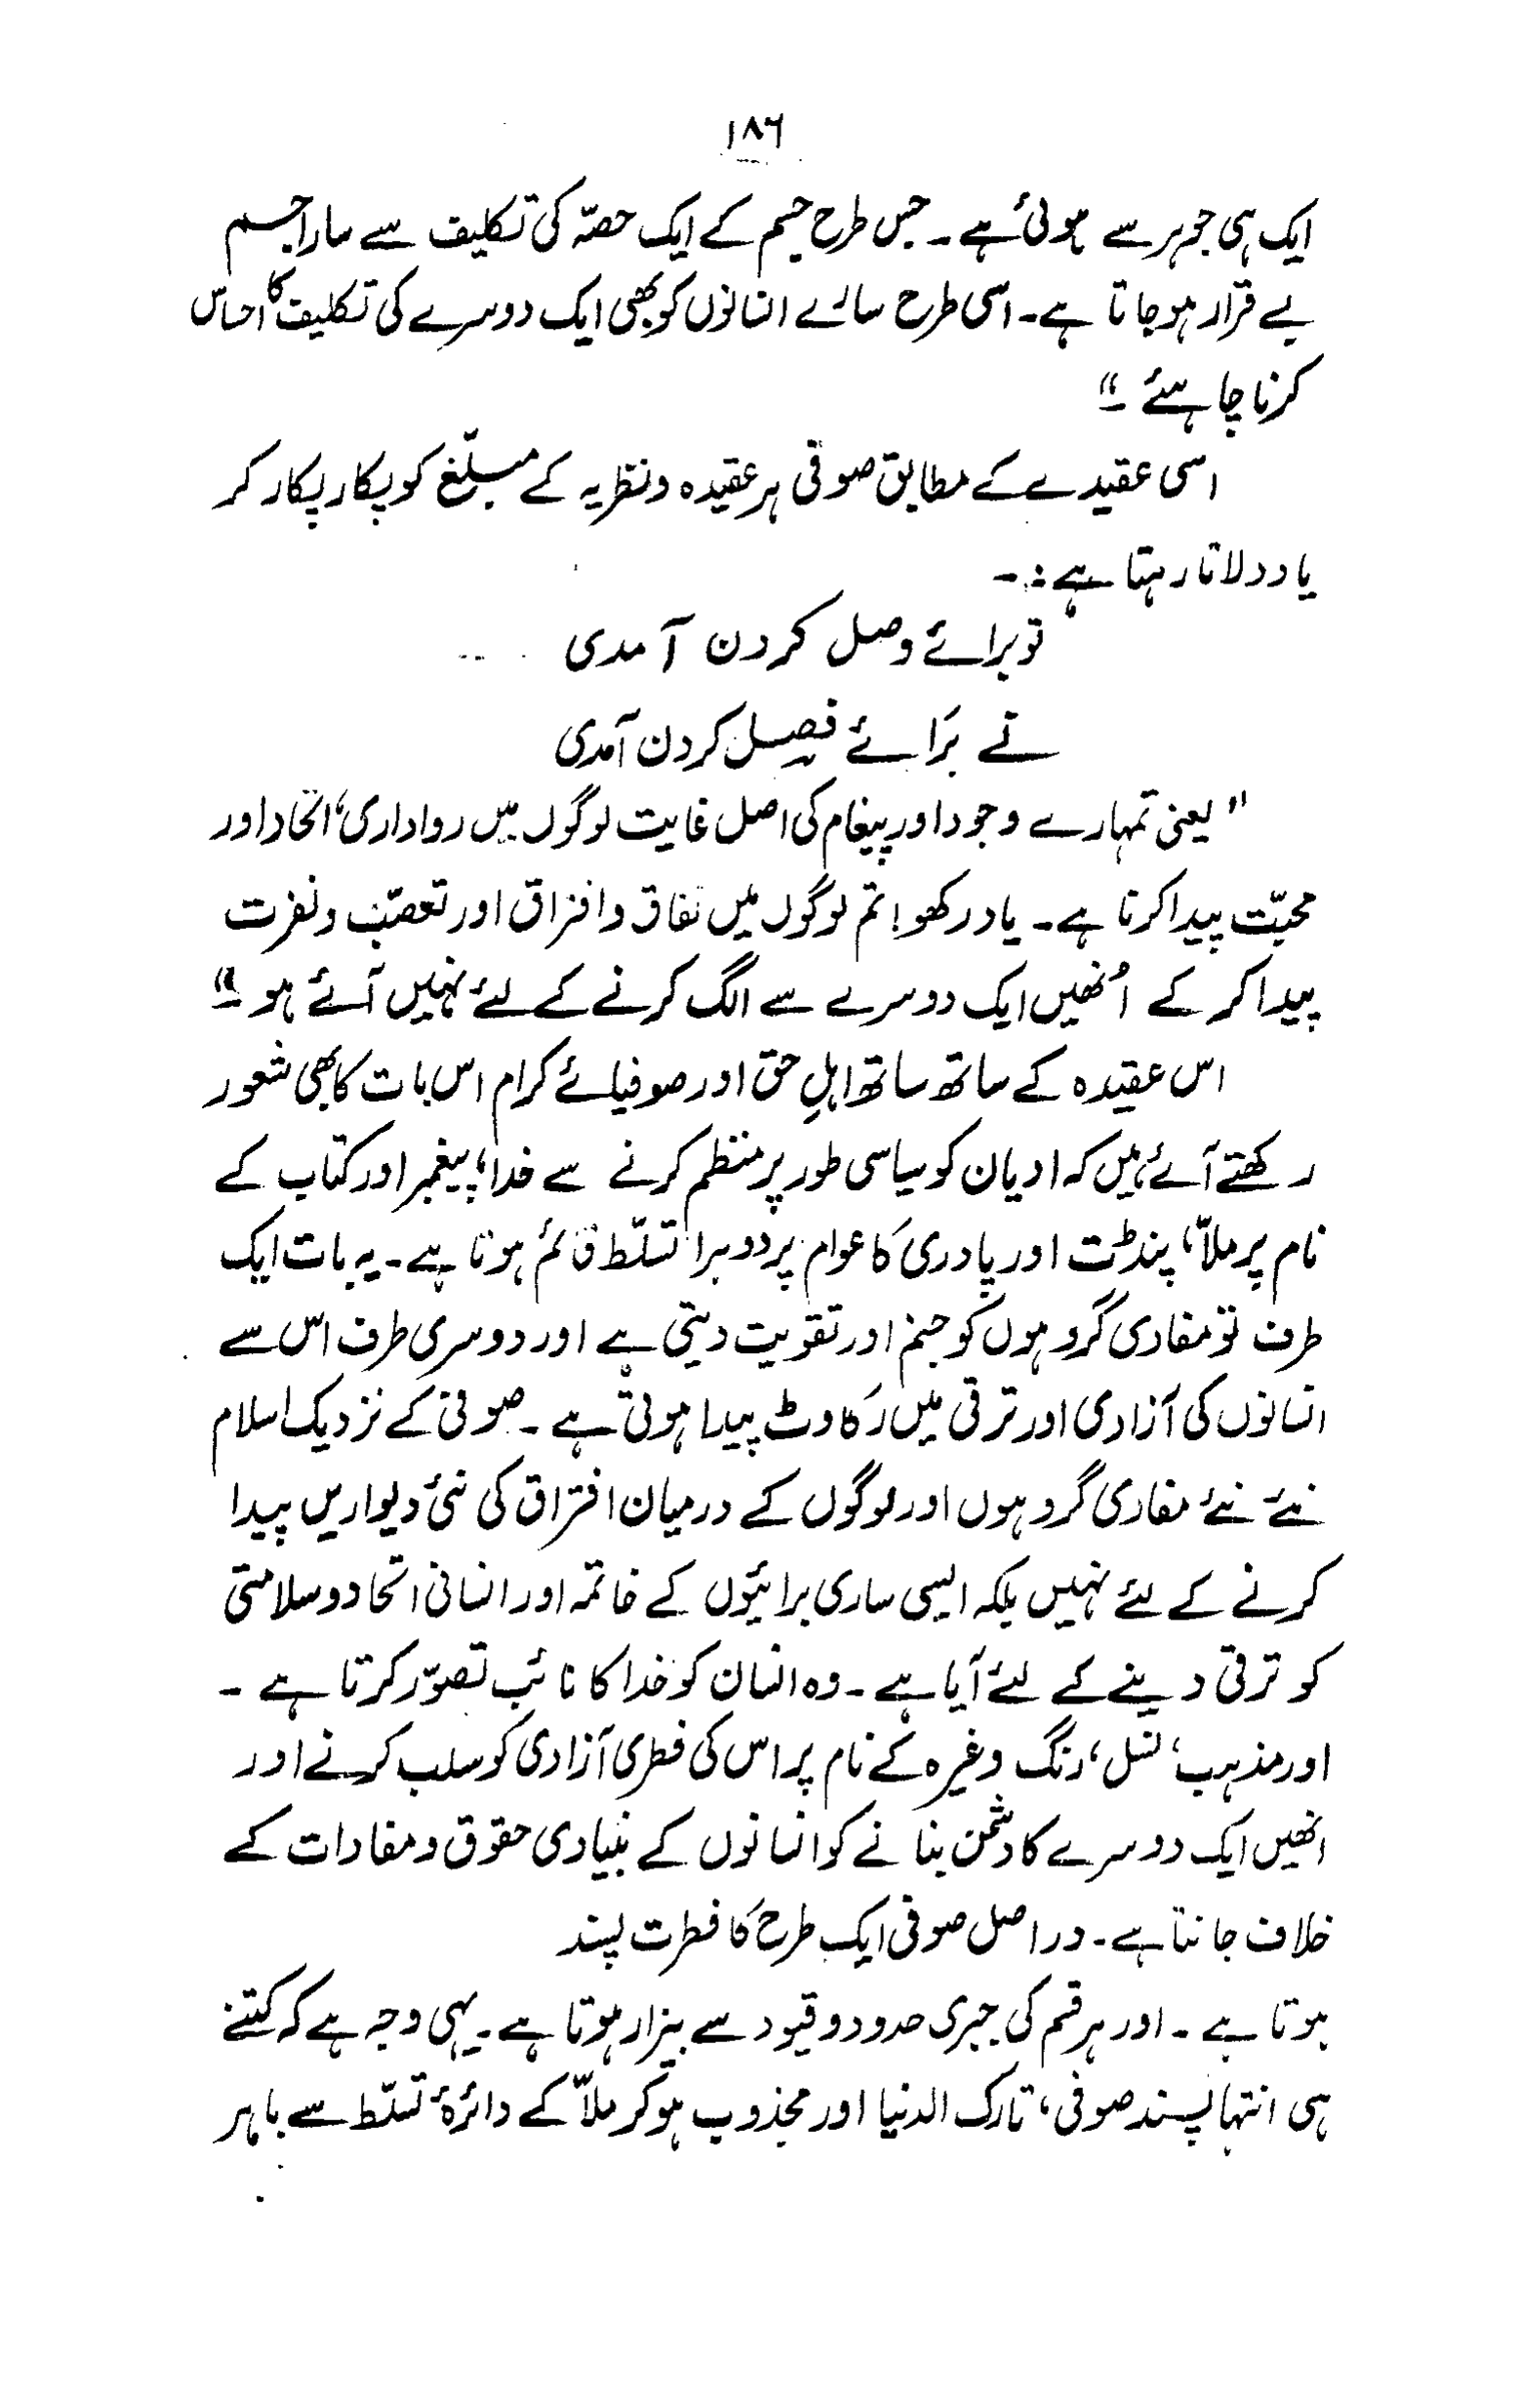 ۱۸۶
ایک ہی جوہر سے ہوئی ہے ۔ جس طرح جسم کے ایک حصّہ کی تکلیف سے سارا جسم
بے قرار ہو جاتا ہے۔ اسی طرح سارے انسانوں کو بھی ایک دوسرے کی تکلیف کا احساس
کرنا چاہئے ۔"
اسی عقیدے کے مطابق صوفی ہر عقیدہ و نظریہ کے مبلّغ کو پکار پکار کر
یاد دلاتا رہتا ہے :۔
تو برائے وصل کردن آمدی
نے برائے فصیل کردن آمدی
" یعنی تمہارے وجود اور پیغام کی اصل غایت لوگوں میں رواداری، اتحاد اور
محبّت پیدا کرنا ہے ۔ یاد رکھو! تم لوگوں میں نفاق و افتراق اور تعصّب و نفرت
پیدا کر کے اُنھیں ایک دوسرے سے الگ کرنے کے لئے نہیں آئے ہو ۔"
اس عقیدہ کے ساتھ ساتھ اہلِ حق اور صوفیائے کرام اس بات کا بھی شعور
رکھتے آئے ہیں کہ ادیان کو سیاسی طور پر منظم کرنے سے خدا، پیغمبر اور کتاب کے
نام پر ملاّ، پنڈت اور پادری کا عوام پر دوہرا تسلّط قائم ہوتا ہے ۔ یہ بات ایک
طرف تو مفادی گروہوں کو جنم اور تقویت دیتی ہے اور دوسری طرف اس سے
انسانوں کی آزادی اور ترقی میں رکاوٹ پیدا ہوتی ہے ۔ صوفی کے نزدیک اسلام
نئے نئے مفادی گروہوں اور لوگوں کے درمیان افتراق کی نئی دیواریں پیدا
کرنے کے لئے نہیں بلکہ ایسی ساری برائیوں کے خاتمہ اور انسانی اتحاد و سلامتی
کو ترقی دینے کے لئے آیا ہے ۔ وہ انسان کو خدا کا نائب تصوّر کرتا ہے ۔
اور مذہب، نسل، رنگ وغیرہ کے نام پر اس کی فطری آزادی کو سلب کرنے اور
انھیں ایک دوسرے کا دشمن بنانے کو انسانوں کے بنیادی حقوق و مفادات کے
خلاف جانتا ہے ۔ دراصل صوفی ایک طرح کا فطرت پسند
ہوتا ہے ۔ اور ہر قسم کی جبری حدود و قیود سے بیزار ہوتا ہے ۔ یہی وجہ ہے کہ کتنے
ہی انتہا پسند صوفی، تارک الدنیا اور مجذوب ہو کر ملاّ کے دائرۂ تسلّط سے باہر